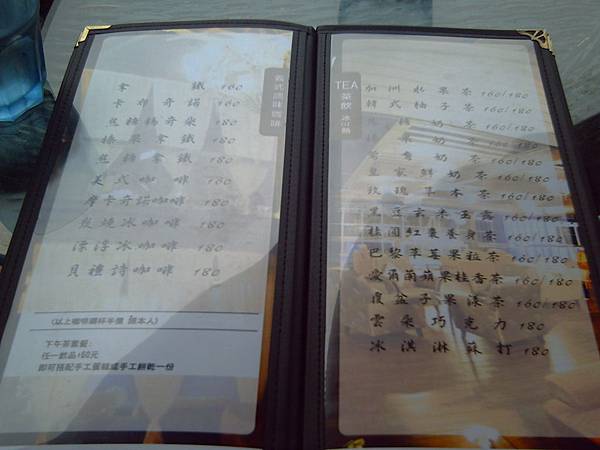 義式調味咖啡
拿鐵 160
卡布奇諾 160
焦糖瑪奇朵 180
榛果拿鐵 180
焦糖拿鐵 180
美式咖啡 180
摩卡奇諾咖啡 180
炭燒冰咖啡 180
漂浮冰咖啡 180
貝禮詩咖啡 180
(以上咖啡續杯半價 限本人)
下午茶套餐:
任一飲品+60元
即可搭配手工蛋糕或手工餅乾一份
TEA 茶飲 冰/熱
加州水果茶 160/180
韓式柚子茶 160/180
奶茶 160/180
奶茶 160/180
鴛鴦奶茶 160/180
皇家鮮奶茶 160/180
玫瑰草本茶 160/180
黑豆玄米玉露 160/180
桂圓紅棗養身茶 160/180
巴黎草莓果粒茶 160/180
愛爾蘭蘋果桂香茶 160/180
覆盆子果漾茶 160/180
雲朵巧克力 180
冰淇淋蘇打 180